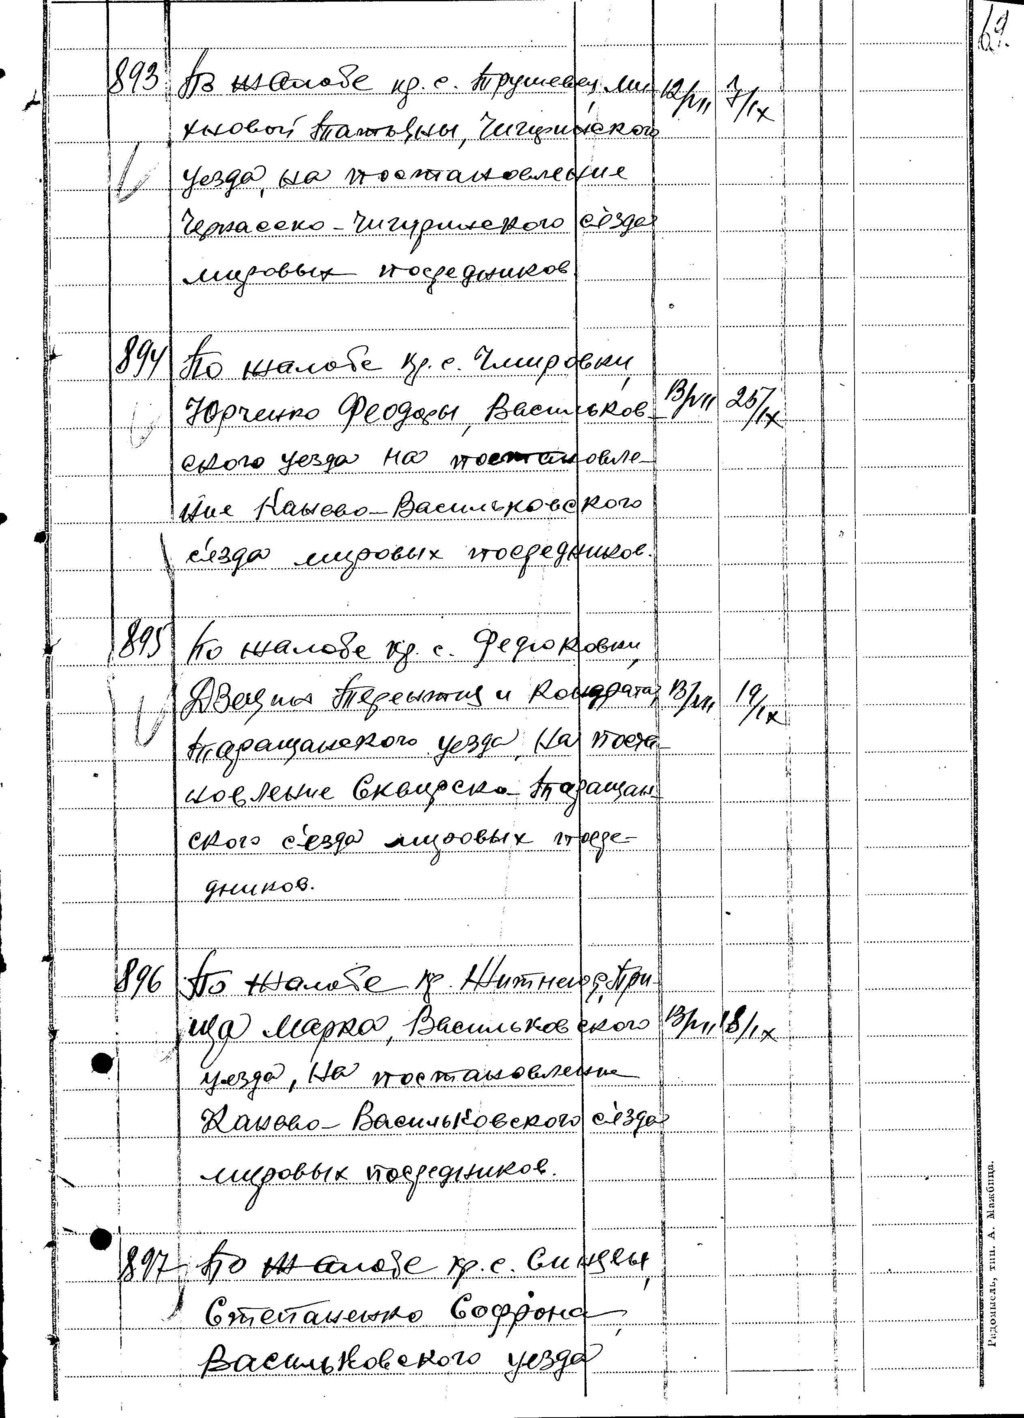 69.
893 По жалобе кр. с. Трушевец, Ми- 12/VII 7/IX
хновой Татьяны, Чигиринского
уезда, на постановление
Черкасско-Чигиринского с'езда
мировых посредников.
894 По жалобе кр. с. Чмировки,
Юрченко Феодоры, Васильков- 13/VII 25/IX
ского уезда на постановле-
ние Канево-Васильковского
с'езда мировых посредников.
895 По жалобе кр. с. Федюковки,
Терентия и Кондрата, 13/VII 19/IX
Таращанского уезда, на поста-
новление Сквирско-Таращан-
ского с'езда мировых посре-
дников.
896 По жалобе кр. Житнегор, При-
ща Марка, Васильковского 13/VII 18/IX
уезда, на постановление
Канево-Васильковского с'езда
мировых посредников.
897 По жалобе кр. с. Синявы,
Степаненко Софрона,
Васильковского уезда
Радомысль, тип. А. Мажбица.